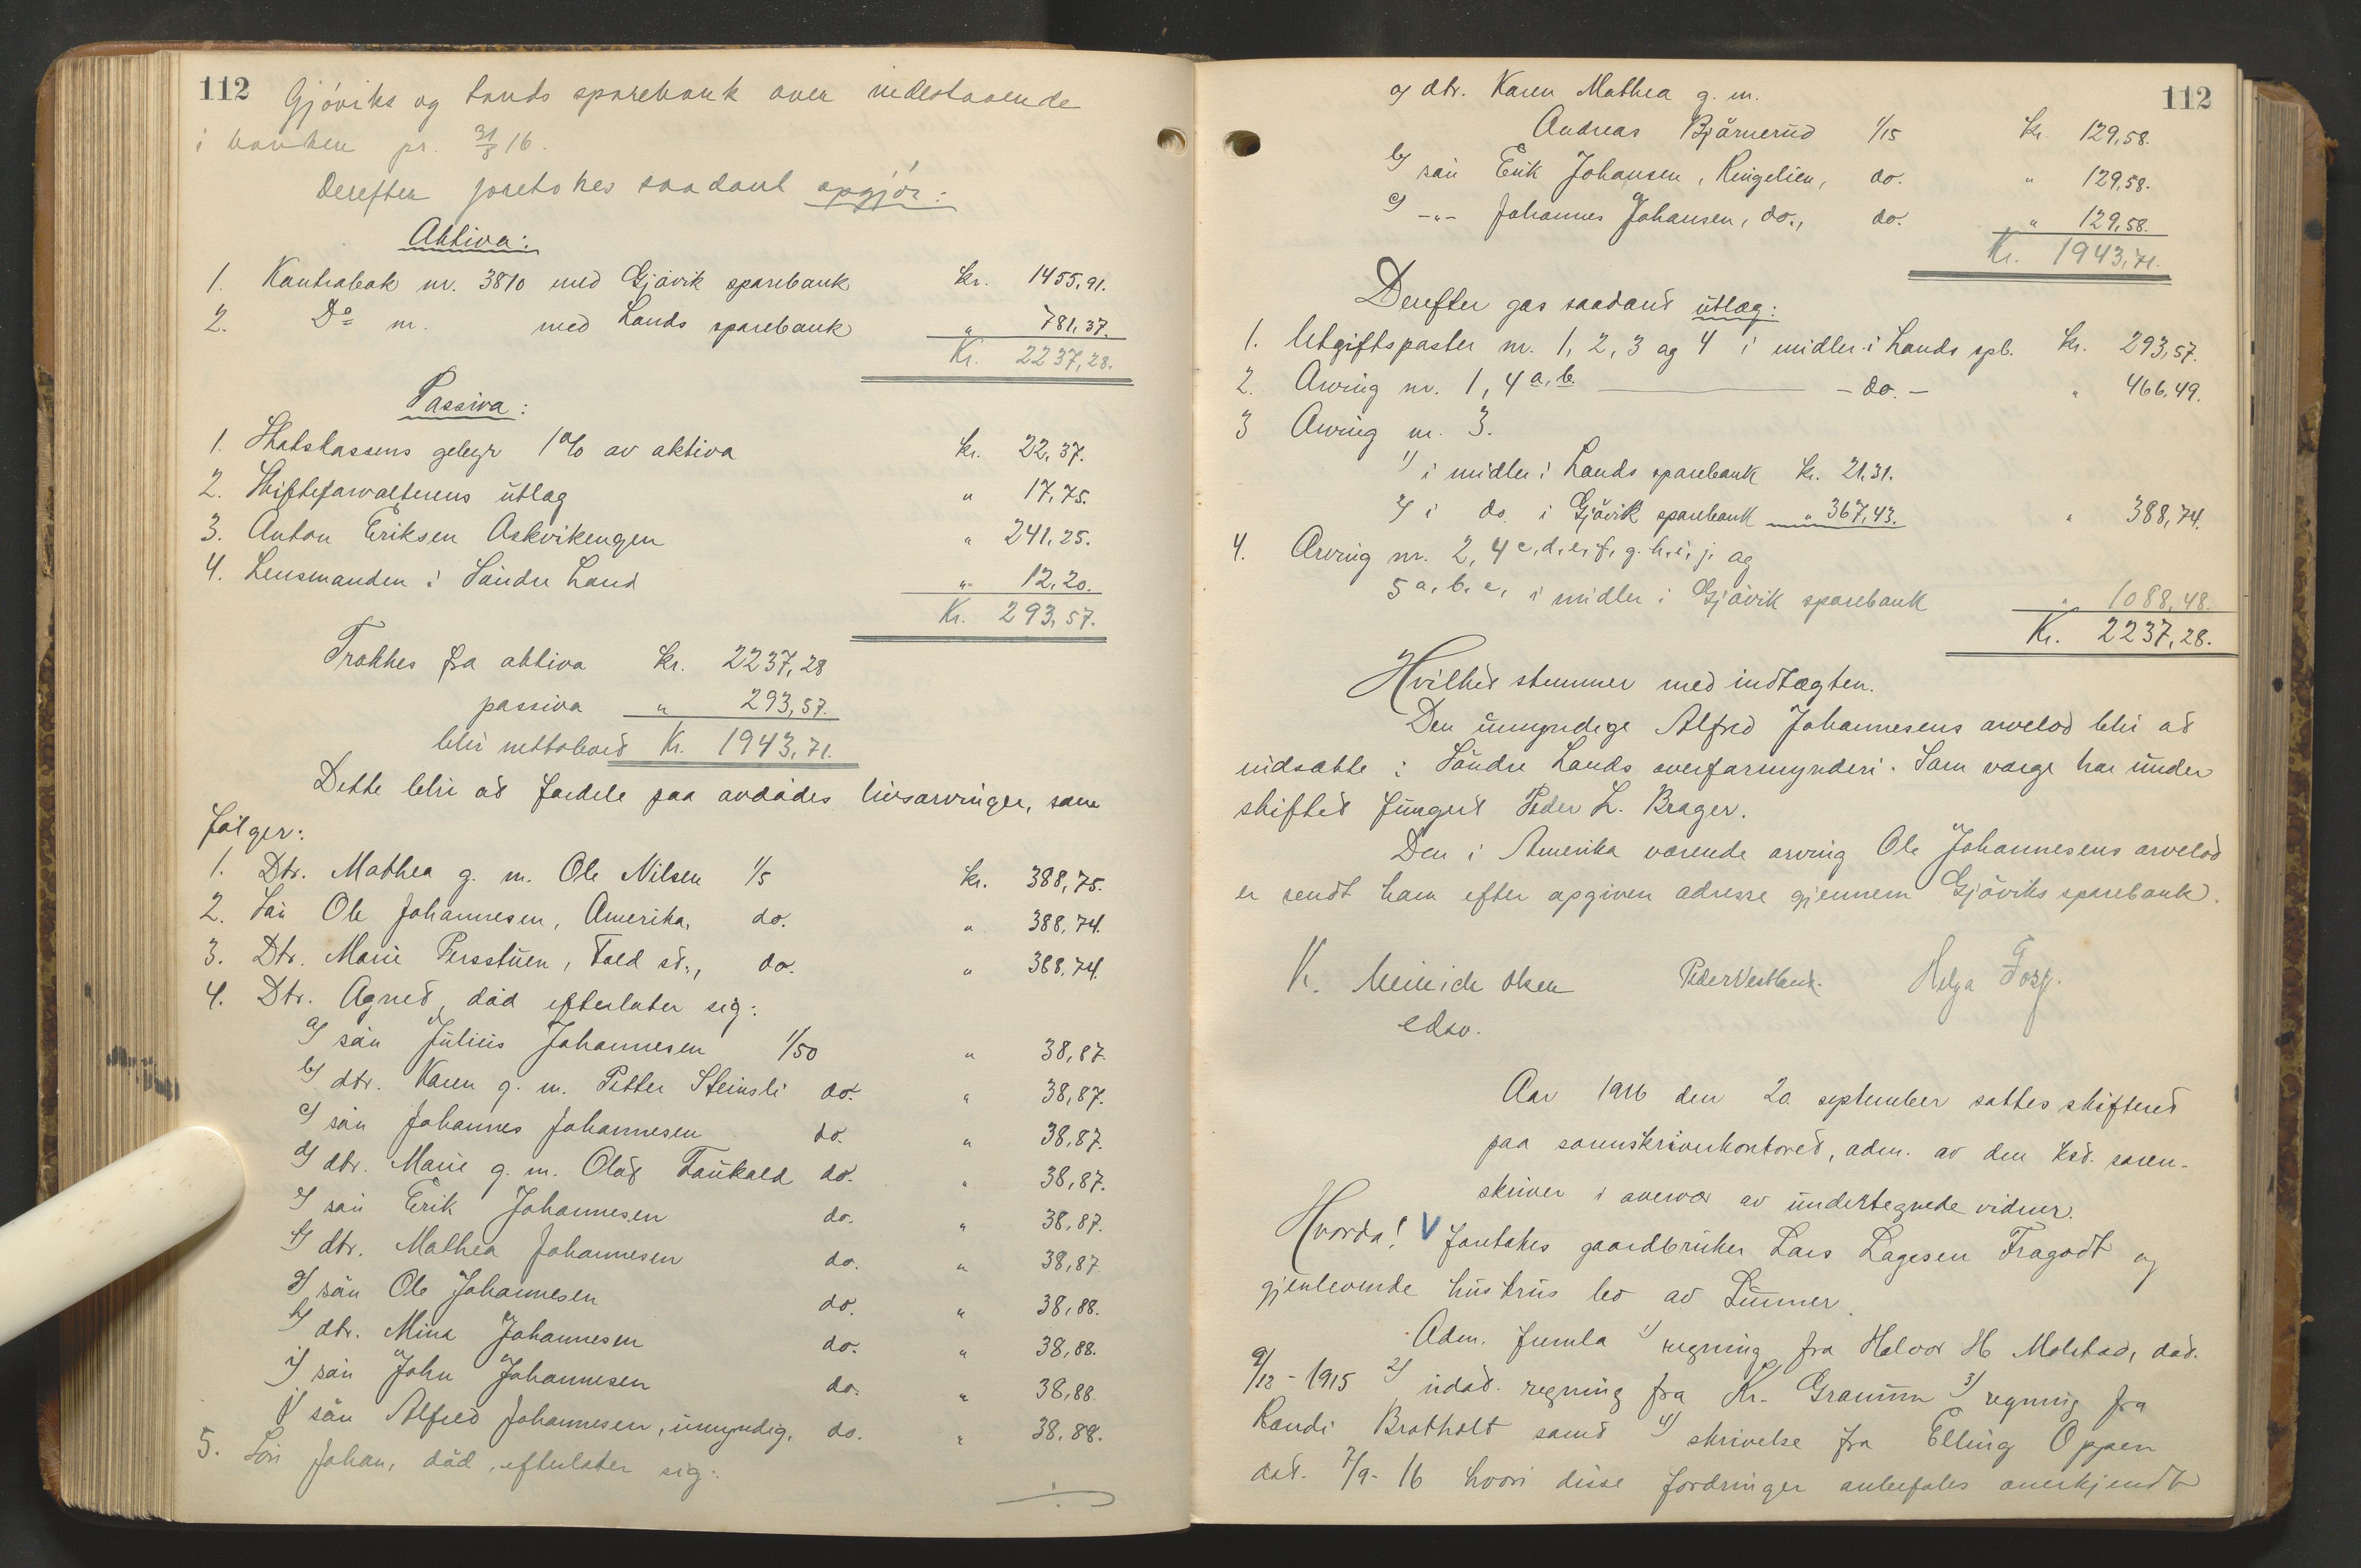 112
Gjöviks og Lands sparebank over indestaaende
i banken pr. 31/8 16.
Derefter foretokes saadant opgjör:
Aktiva:
1. Kontrabok nr. 3810 med Gjövik sparebank kr. 1455,91.
2. Do nr. med Lands sparebank " 781,37.
Kr. 2237,28.
Passiva:
1. Statskassens gebyr 1% av aktiva kr. 22,37.
2. Skifteforvalterens utlæg " 17,75.
3. Anton Eriksen Askvikengen " 241,25.
4. Lensmanden i Söndre Land " 12,20.
Kr. 293,57.
Trækkes fra aktiva kr. 2237,28
passiva " 293,57.
blir nettobeh. Kr. 1943,71.
Dette blir at fordele paa avdödes livsarvinger, som
fölger:
1. Dtr. Mathea g. m. Ole Nilsen 1/5 kr. 388,75.
2. Sön Ole Johannesen, Amerika, do. " 388,74.
3. Dtr. Marie Persstuen, Fald st., do. " 388,74.
4. Dtr. Agnet, död efterlater sig:
a) sön Julius Johannesen 1/50 " 38,87.
b) dtr. Karen g. m. Petter Steinsli do. " 38,87.
c) sön Johannes Johannesen do. " 38,87.
d) dtr. Marie g. m. Olaf Taukald do. " 38,87.
e) sön Erik Johannesen do. " 38,87.
f) dtr. Mathea Johannesen do. " 38,87
g) sön Ole Johannesen do. " 38,88.
h) dtr. Mina Johannesen do. " 38,88.
i) sön John Johannesen do. " 38,88.
j) sön Alfred Johannesen, umyndig, do. " 38,88.
5. Sön Johan, död, efterlater sig:
a) dtr. Karen Mathea g. m.
112
Andreas Björnerud 1/15 kr. 129,58.
b) sön Erik Johansen, Ringelien, do. " 129,58.
c) -"- Johannes Johansen, do., do. " 129,58.
Kr. 1943,71.
Derefter gas saadant utlæg:
1. Utgiftsposter nr. 1, 2, 3 og 4 i midler i Lands spb. kr. 293,57.
2. Arving nr. 1, 4 a, b. - do. - " 466,49.
3 Arving nr. 3.
1) i midler i Lands sparebank kr. 21,31.
2) i do. i Gjövik sparebank " 367,43. " 388,74.
4. Arving nr. 2, 4 c, d, e, f, g. h, i, j. og
5 a, b. c, i midler i Gjövik sparebank " 1088,48.
Kr. 2237,28.
Hvilket stemmer med indtægten.
Den umyndige Alfred Johannesens arvelod blir at
indsætte i Söndre Lands overformynderi. Som værge har under
skiftet fungert Peder L. Brager.
Den i Amerika værende arving Ole Johannesens arvelod
er sendt ham efter opgiven adresse gjennem Gjöviks sparebank.
K. Meinich Olsen Peder Vestland. Helga Fosf.
edsv.
Aar 1916 den 20 september sattes skifteret
paa sorenskriverkontoret, adm. av den kst. soren-
skriver i overvær av undertegnede vidner.
Hvorda! V Foretokes gaardbruker Lars Lagesen Fragodt og
gjenlevende hustrus bo av Lunner.
Adm. fremla 1) regning fra Halvor H Molstad, dat.
9/12 - 1915 2) udat. regning fra Kr. Granum 3) regning fra
Randi Bratholt samt 4) skrivelse fra Elling Oppen
dat. 7/9- 16 hvori disse fordringer anbefales anerkjendt